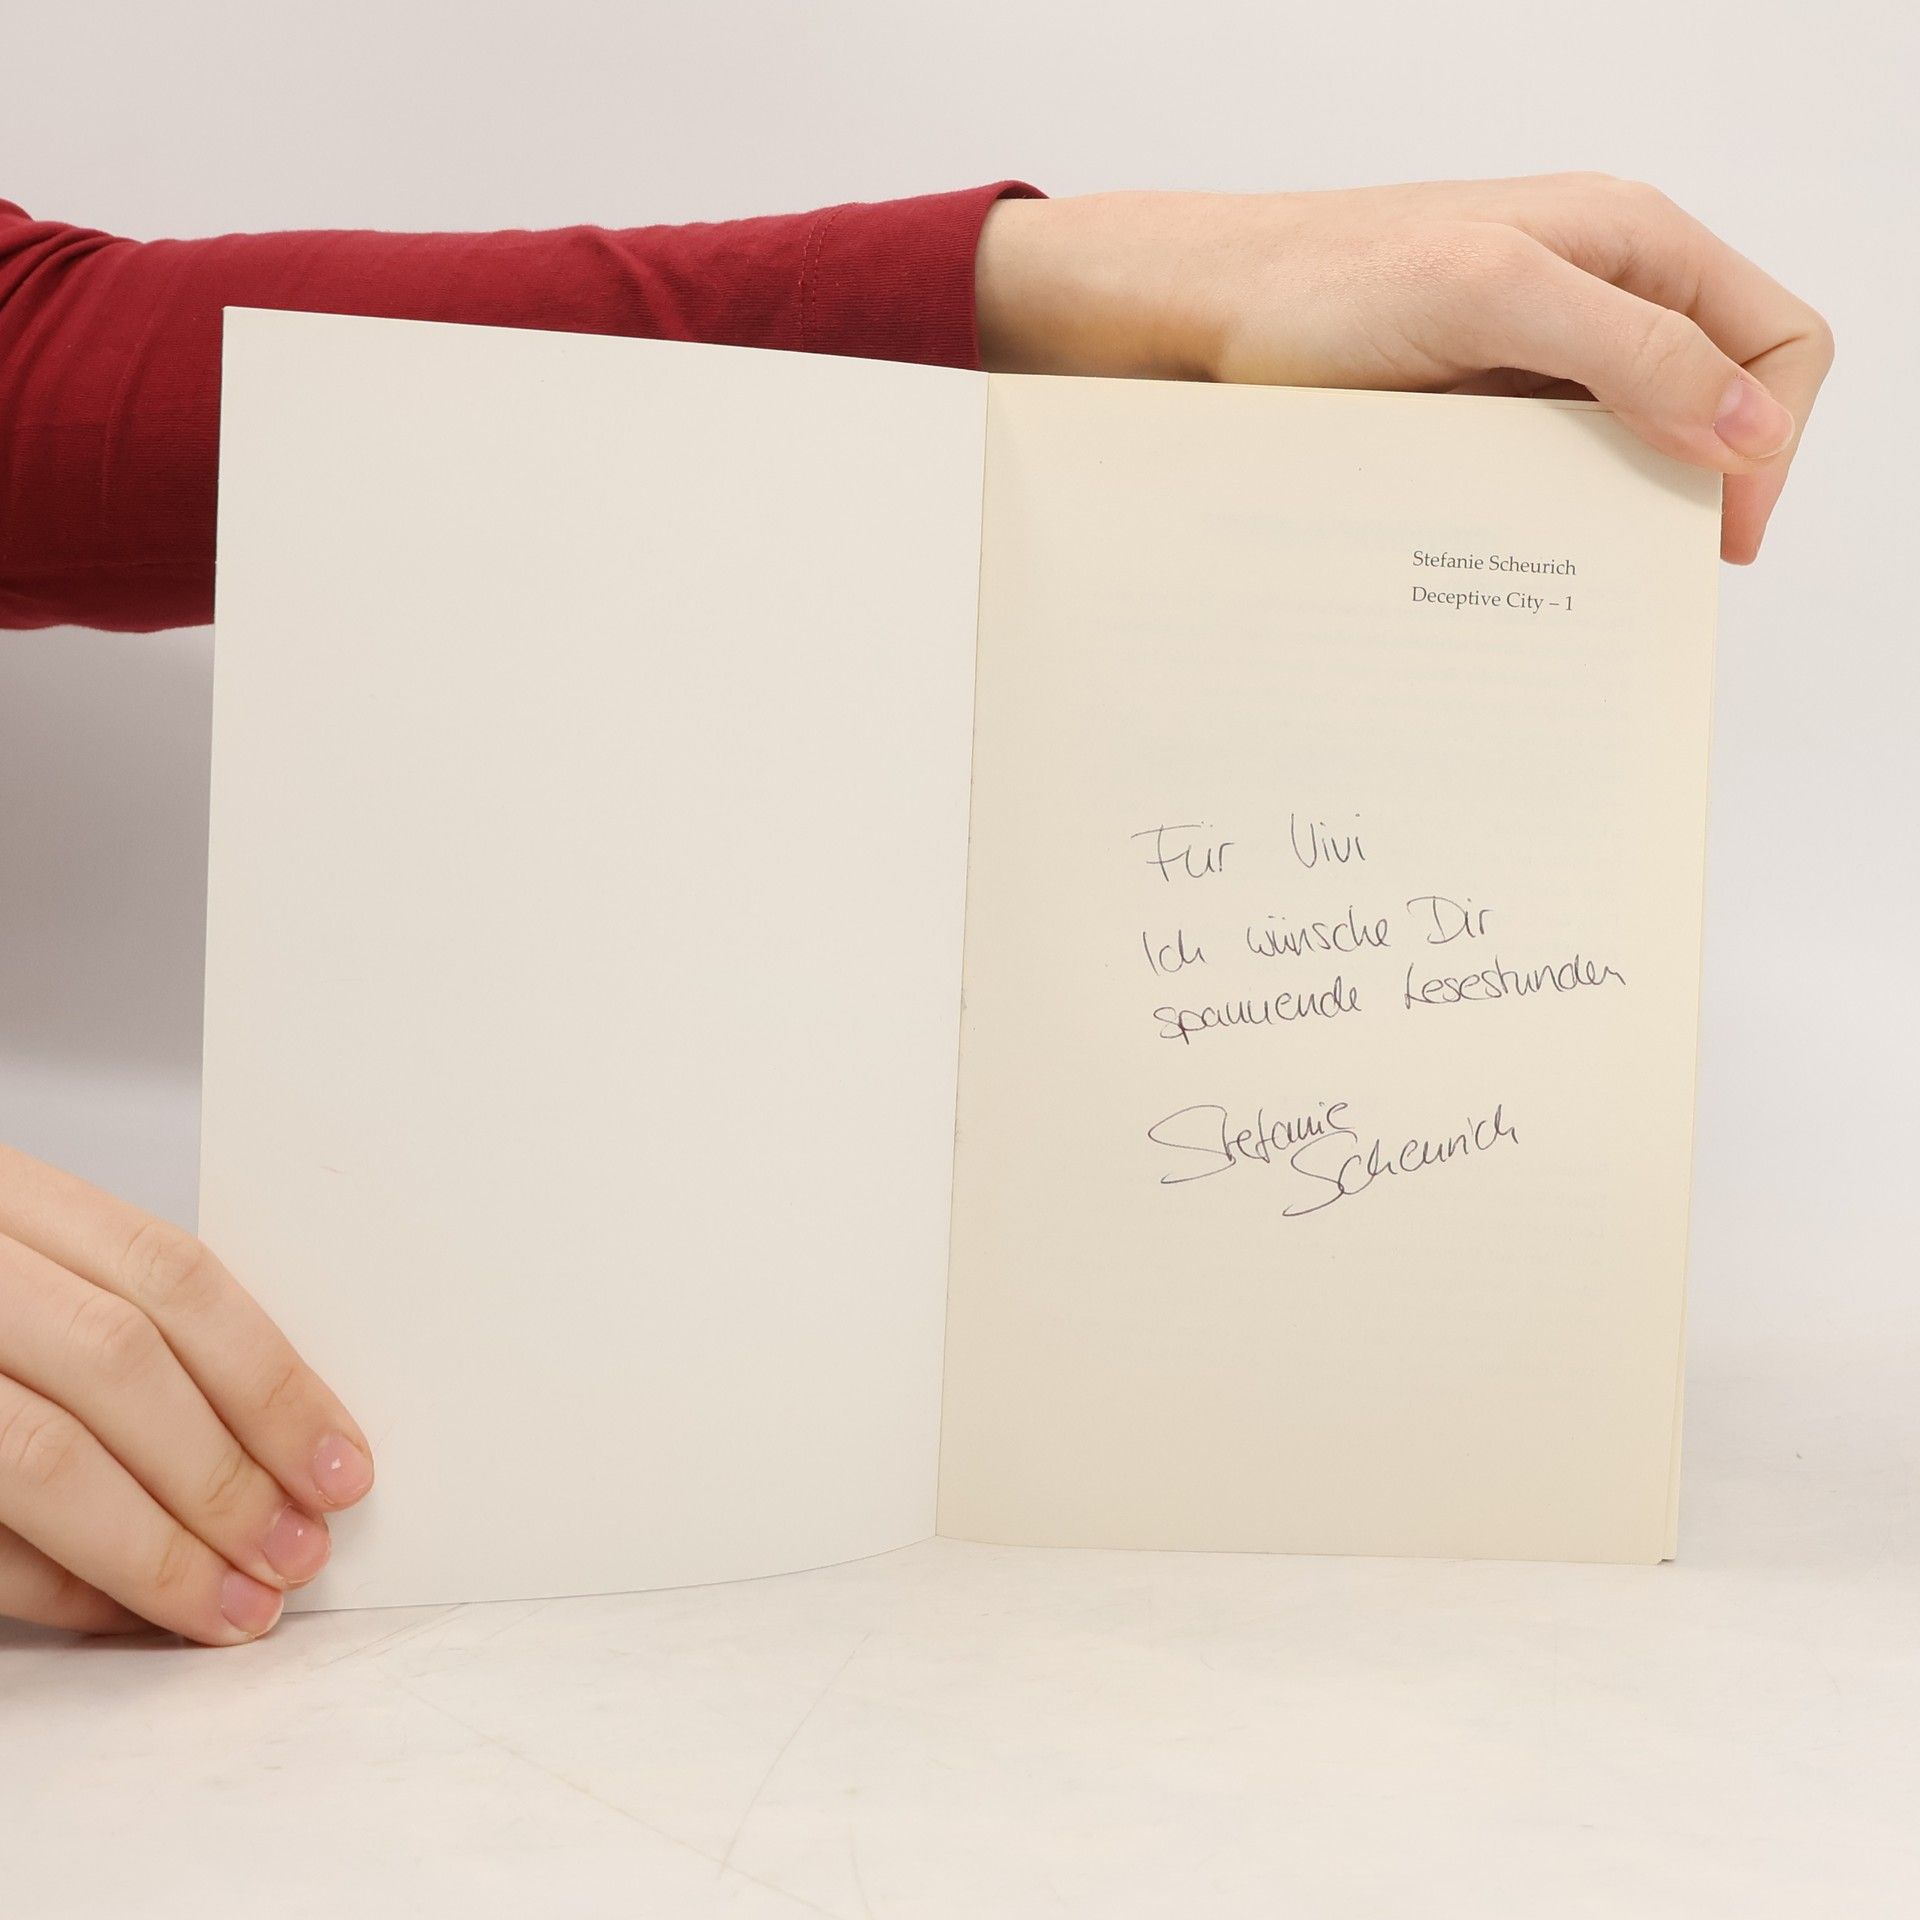 Stefanie Scheurich
Deceptive City – 1
Für Vivi
Ich wünsche Dir
spannende Lesestunden
Stefanie
Scheurich